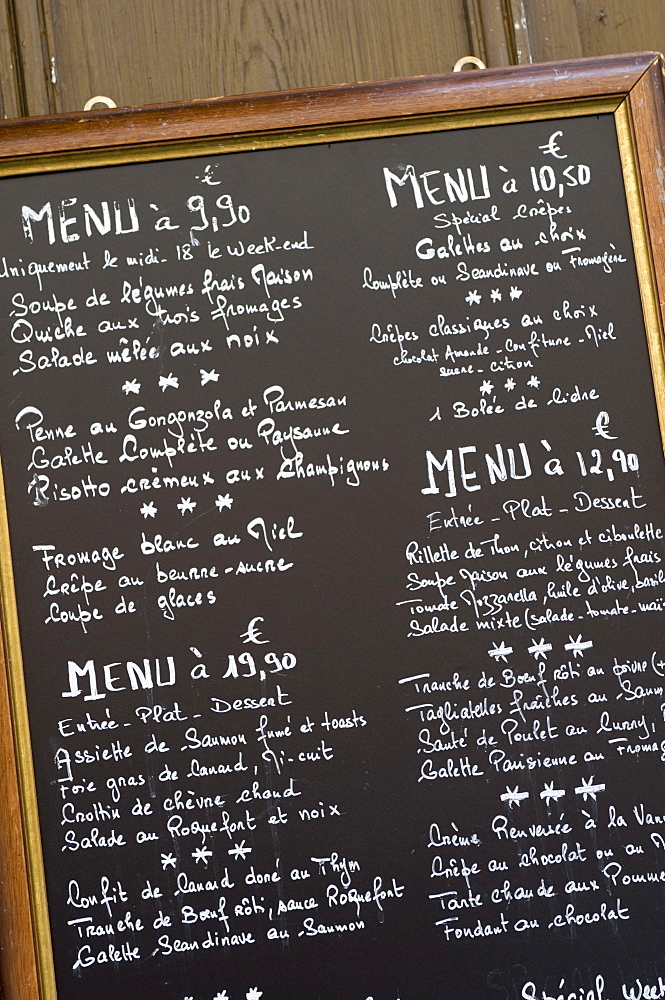 €
MENU à 9,90
Uniquement le midi - 18 le Week-end
Soupe de légumes frais Maison
Quiche aux trois fromages
Salade mêlée aux noix
* * *
Penne au Gongonzola et Parmesan
Galette Complète ou Paysanne
Risotto crèmeux aux Champignons
* * *
Fromage blanc au Miel
Crêpe au beurre-sucre
Coupe de glaces
€
MENU à 19,90
Entrée - Plat - Dessent
Assiette de Saumon fumé et toasts
Foie gras de Canard, Mi-cuit
Crottin de chèvre chaud
Salade au Roquefort et noix
* * *
Confit de Canard doré au Thym
Tranche de Bœuf rôti, sauce Roquefort
Galette Scandinave au Saumon
* * *
€
MENU à 10,50
Spécial Crêpes
Galettes au choix
Complète ou Scandinave ou Fromagère
* * *
Crêpes classiques au choix
chocolat Amande - Confiture - Miel
sucre - citron
* * *
1 Bolée de Cidre
€
MENU à 12,90
Entrée - Plat - Dessent
Rillette de Thon, citron et ciboulette
Soupe Maison aux légumes frais
Tomate Mozzarella, huile d'olive, basil
Salade mixte (salade - tomate - maï
* * *
Tranche de Bœuf rôti au poivre (+
Tagliatelles fraîches au Saum
Sauté de Poulet au Curry,
Galette Parisienne au Fromag
* * *
Crème Renversée à la Van
Crêpe au chocolat ou au M
Tarte chaude aux Pomme
Fondant au chocolat
Spécial Week